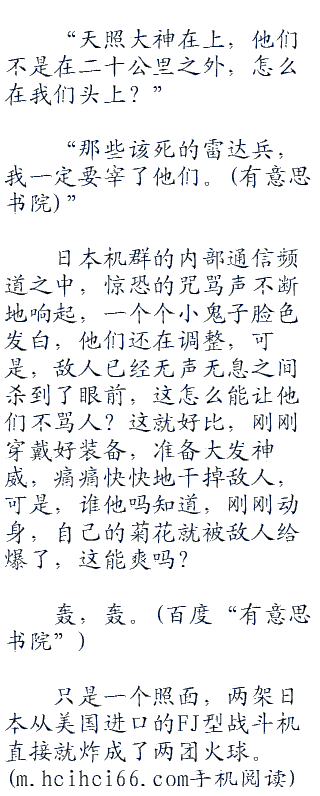 “天照大神在上，他们
不是在二十公里之外，怎么
在我们头上？”
“那些该死的雷达兵，
我一定要宰了他们。(有意思
书院)”
日本机群的内部通信频
道之中，惊恐的咒骂声不断
地响起，一个个小鬼子脸色
发白，他们还在调整，可
是，敌人已经无声无息之间
杀到了眼前，这怎么能让他
们不骂人？这就好比，刚刚
穿戴好装备，准备大发神
威，痛痛快快地干掉敌人，
可是，谁他吗知道，刚刚动
身，自己的菊花就被敌人给
爆了，这能爽吗？
轰，轰。(百度“有意思
书院”)
只是一个照面，两架日
本从美国进口的FJ型战斗机
直接就炸成了两团火球。
(m.hcihci66.com手机阅读)